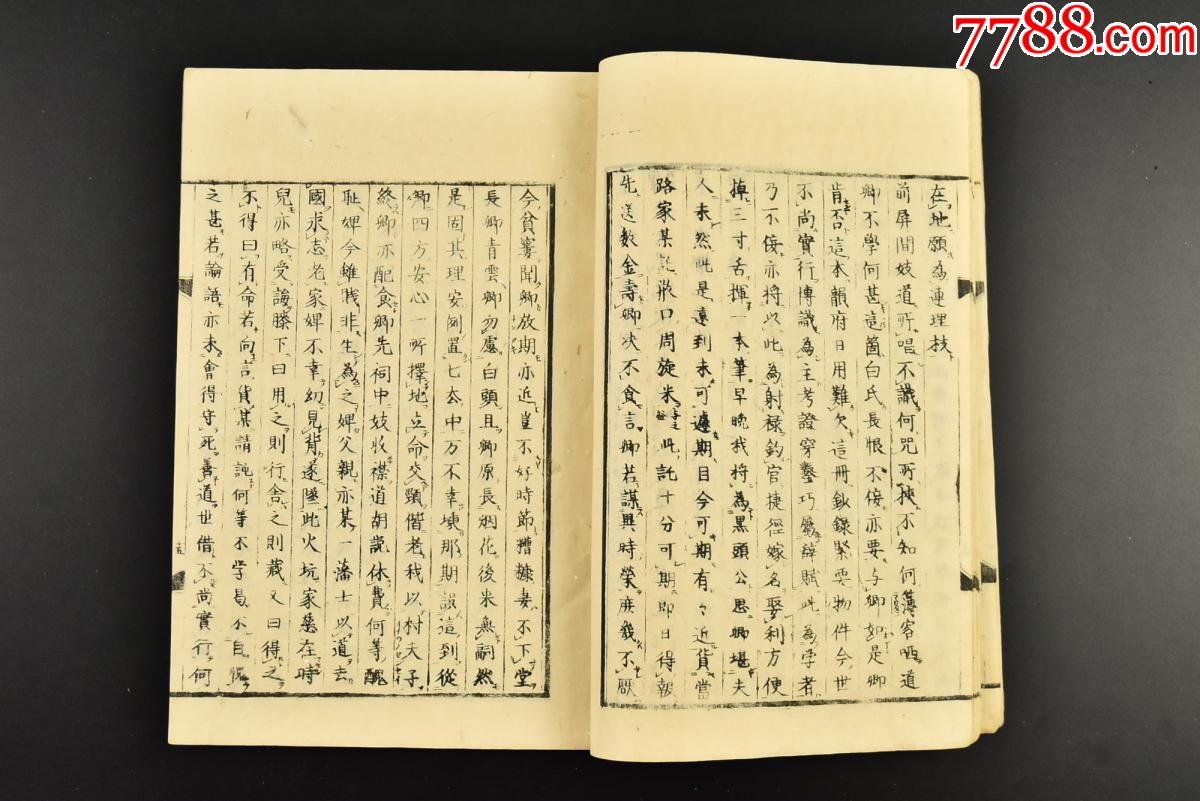 7788.com
在地願為連理枝
前屏間妓道所唱不識何咒所挾不知何簿客哂道
卿不學何甚這箇白氏長恨不侫亦要与卿如是卿
肯否這本韻府日用難欠這冊鈔錄緊要物件今世
不尚實行博識為主考證穿鑿巧屬辭賦此為学者
乃不侫亦將以此為射祿釣官捷徑嫁名娶利方便
掉三寸舌揮一本筆早晚我將為黒頭公思卿堪夫
人未然此是遠到未可遽期目今可期有々近貨當
路家某欺口周旋米此託十分可期即日得報
先送数金壽卿决不食言卿若謀異時榮庶幾不厭
今貧窶聞卿放期亦近豈不好時節糟糠妻不下堂
長卿青雲卿勿慮白頭且卿原長烟花後来無嗣然
是固其理安例置七去中万不幸埂那期設這到從
卿四方安心一所擇地立命交頸偕老我以村夫子
終卿亦配食卿先祠中妓收襟道胡説休費何等醜
耻婢今雖賎非生為之婢父親亦某一藩士以道去
國求志老家婢不幸幼見背遂墜此火坑家塾在時
兒亦略受誨膝下曰用之則行舎之則蔵又曰得之
不得曰有命若向言貨某請託何等不学曷不自愧
之甚若論語亦未會得守死善道世借不尚實行何